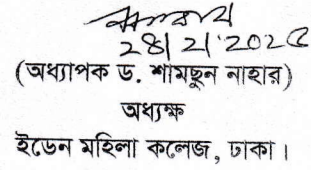 28/2/2025
(অধ্যাপক ড. শামছুন নাহার)
অধ্যক্ষ
ইডেন মহিলা কলেজ, ঢাকা।